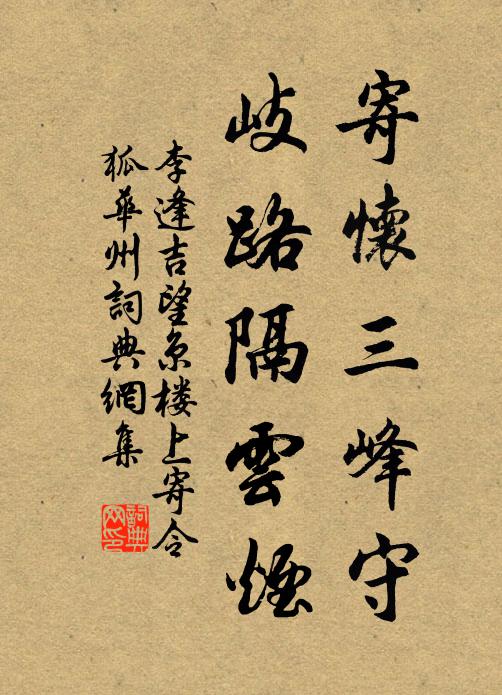 寄懷三峰守
岐路隔雲煙
李逢吉望京楼上寄令
狐華州詞典網集
詞典
网印